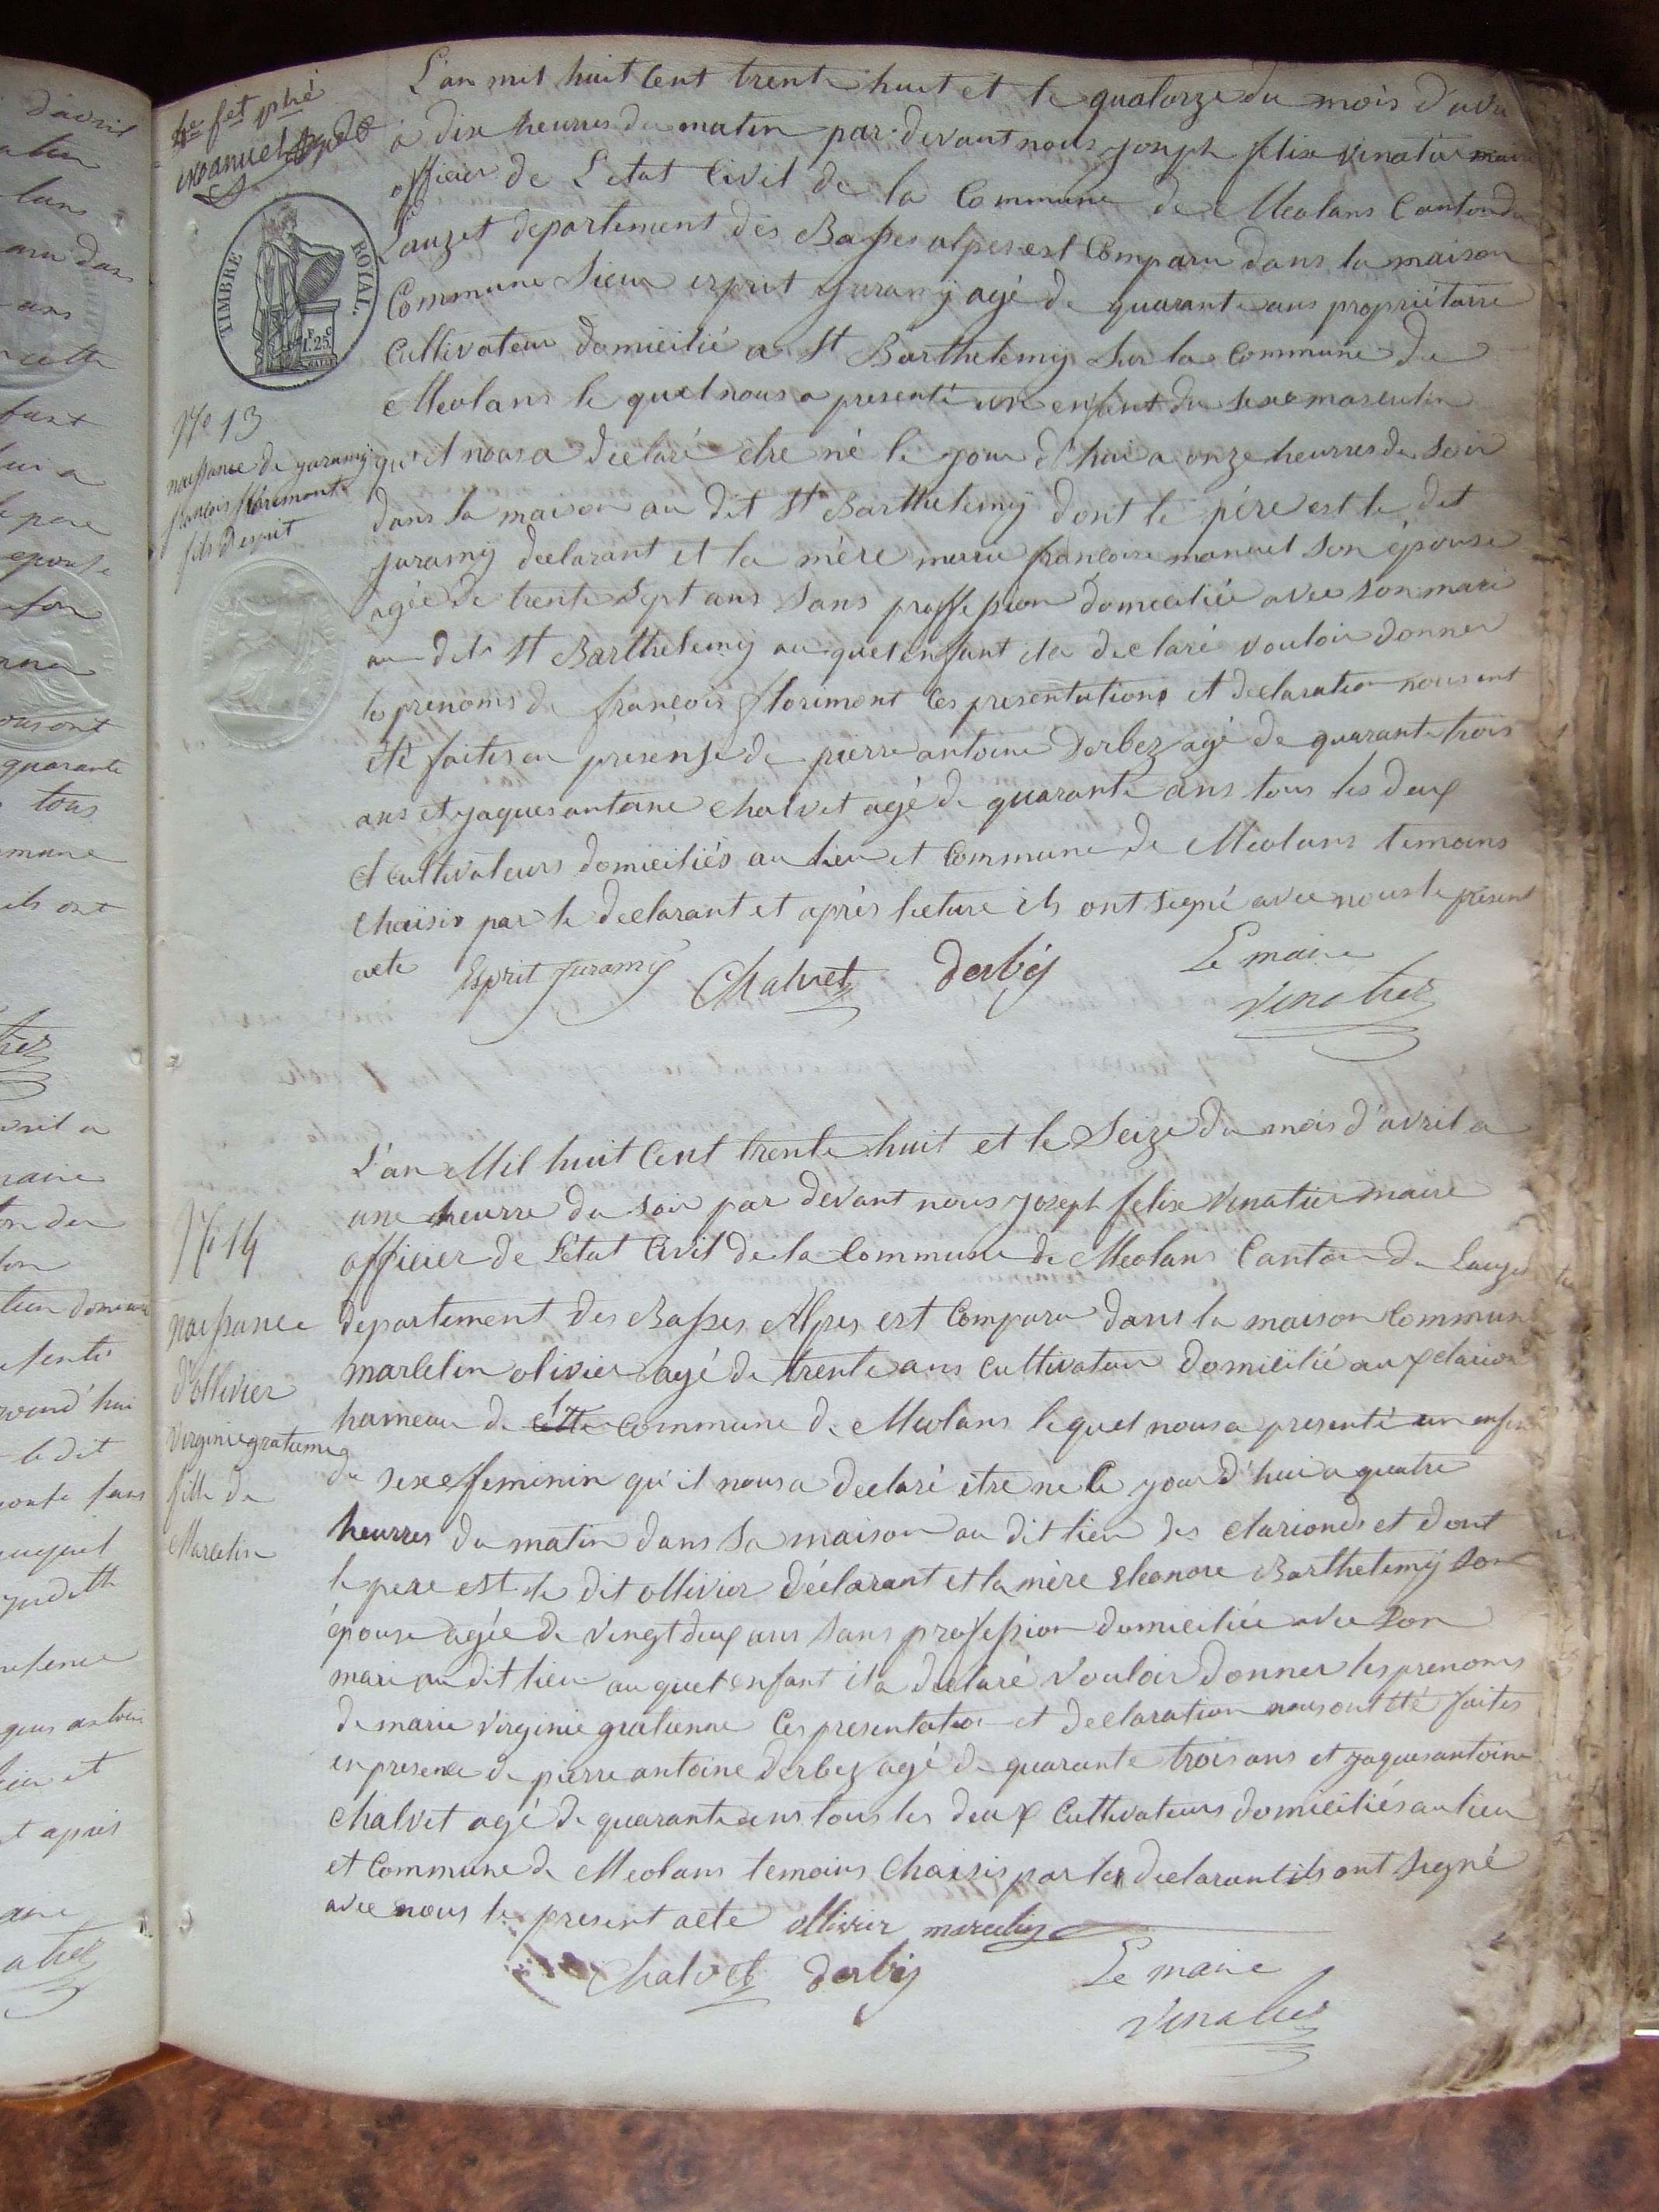 4e fet phé
TIMBRE ROYAL.
1.25
L'an mil huit Cent trente huit et le quatorze du mois d'avril
à dix heurres du matin par devant nous joseph felix vinatier maire
officier de L'etat Civil de la Commune de Meolans Canton du
Lauzet departement des Basses alpes est Comparu dans la maison
Commune Sieur esprit juramy agé de quarante ans propriétaire
Cultivateur domicilié a St Barthelemy sur la Commune de
Meolans le quel nous a presenté un enfant du sexe masculin
N° 13
naissance de juramy
françois florimont
fils desprit
qu'il nous a declaré etre né le jour d'hui a onze heurres du soir
dans sa maison au dit St Barthelemy dont le père est le dit
juramy declarant et la mère marie françoise manuel son épouse
agée de trente sept ans sans proffession domiciliée avec son mari
au dit St Barthelemy au quel enfant il a declaré vouloir donner
les prenoms de françois florimont Ces presentations et declaration nous ont
été faites en presense de pierre antoine Derbez agé de quarante trois
ans et jaques antoine Chalvet agé de quarante ans tous les deux
Cultivateurs domiciliés au lieu et Commune de Meolans temoins
Choisis par le declarant et après lecture ils ont signé avec nous le présent
acte Esprit Juramy Chalvet derbés Le maire
Vinatier
N° 14
naissance
d'ollivier
virginie gratienne
fille de
Marcelin
L'an Mil huit Cent trente huit et le Seize du mois d'avril a
une heurre du soir par devant nous joseph felix Vinatier maire
officier de L'état Civil de la Commune de Meolans Canton du Lauzet
departement des Basses Alpes est Comparu dans la maison Commune
marcelin olivier agé de trente ans Cultivateur domicilié aux clarionds
hameau de cette Commune de Meolans lequel nous a presenté un enfant
du sexe feminin qu'il nous a declaré être né le jour d'hui a quatre
heurres du matin dans sa maison au dit lieu des clarionds et dont
le pere est le dit ollivier déclarant et la mère Eleonore Barthelemy son
épouse agée de vingt deux ans sans profession domiciliée avec son
mari au dit lieu au quel enfant il a declaré Vouloir donner les prenoms
de marie virginie gratienne Ces presentation et declaration nous ont été faites
en presence de pierre antoine Derbez agé de quarante trois ans et jaques antoine
Chalvet agé de quarante ans tous les deux Cultivateurs domiciliés au lieu
et Commune de Meolans temoins Choisis par le declarant ils ont signé
avec nous le present acte ollivier marcelin
Chalvet derbés Le maire
Vinatier